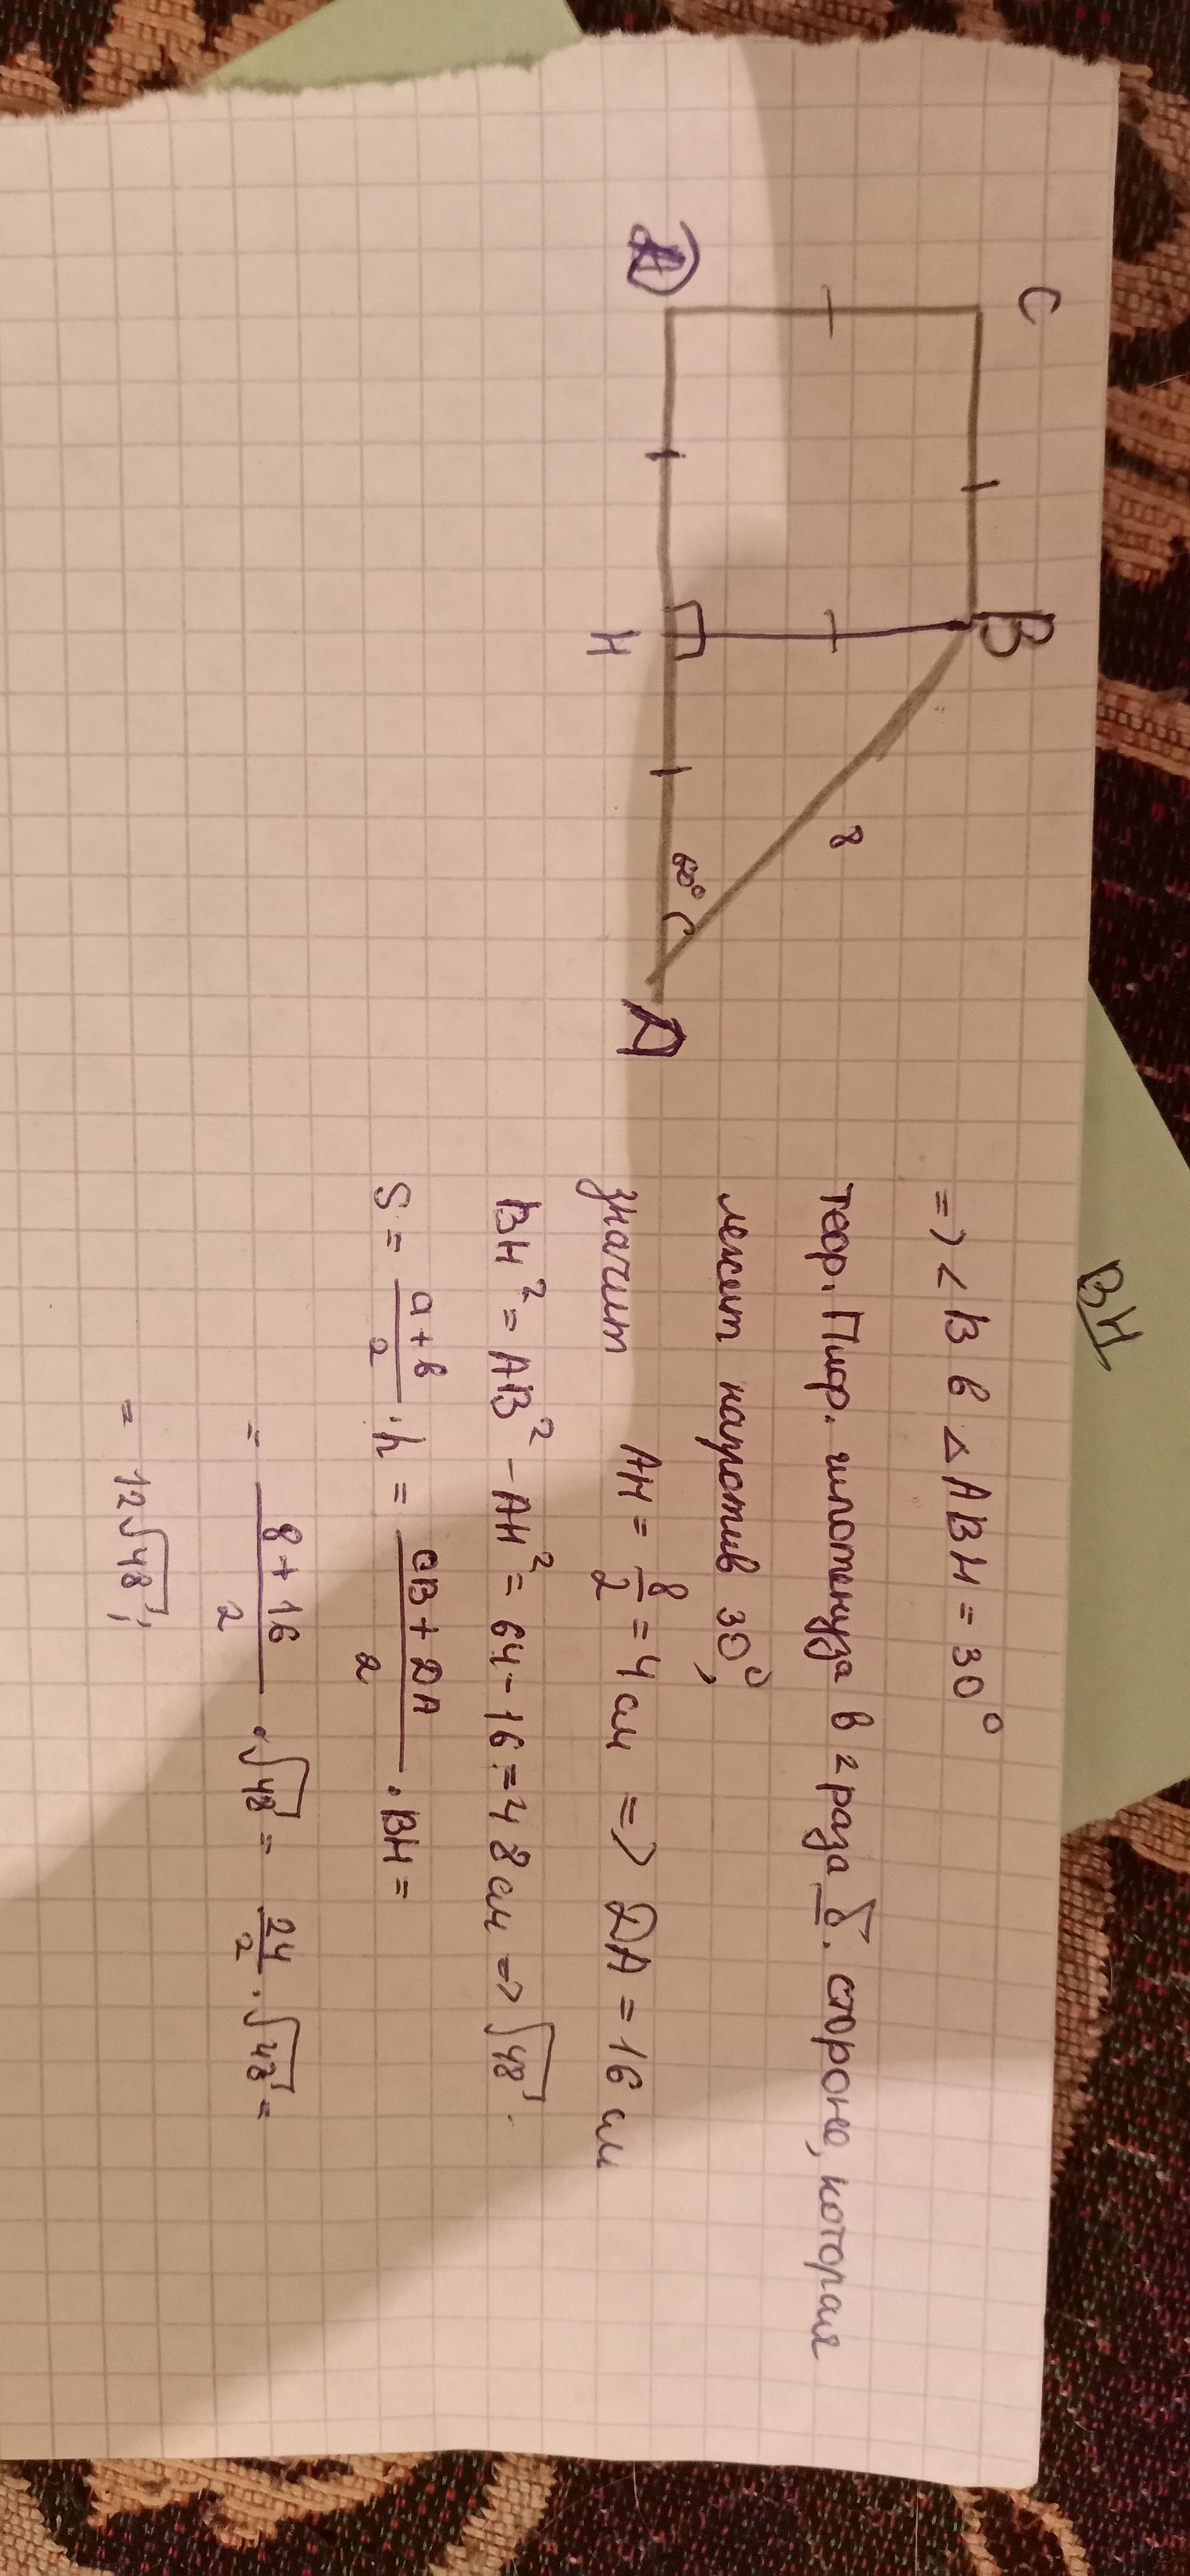 BH,
C
B
8
60°
D
H
A
=> < B в △ ABH = 30°
теор. Пиф. гипотенуза в 2 раза б. стороне, которая
лежит напротив 30°,
значит AH = 8/2 = 4 см => DA = 16 см
BH² = AB² - AH² = 64 - 16 = 48 см => √48.
S = a+b/2 · h = CB + DA/2 · BH =
= 8+16/2 · √48 = 24/2 · √48 =
= 12√48;